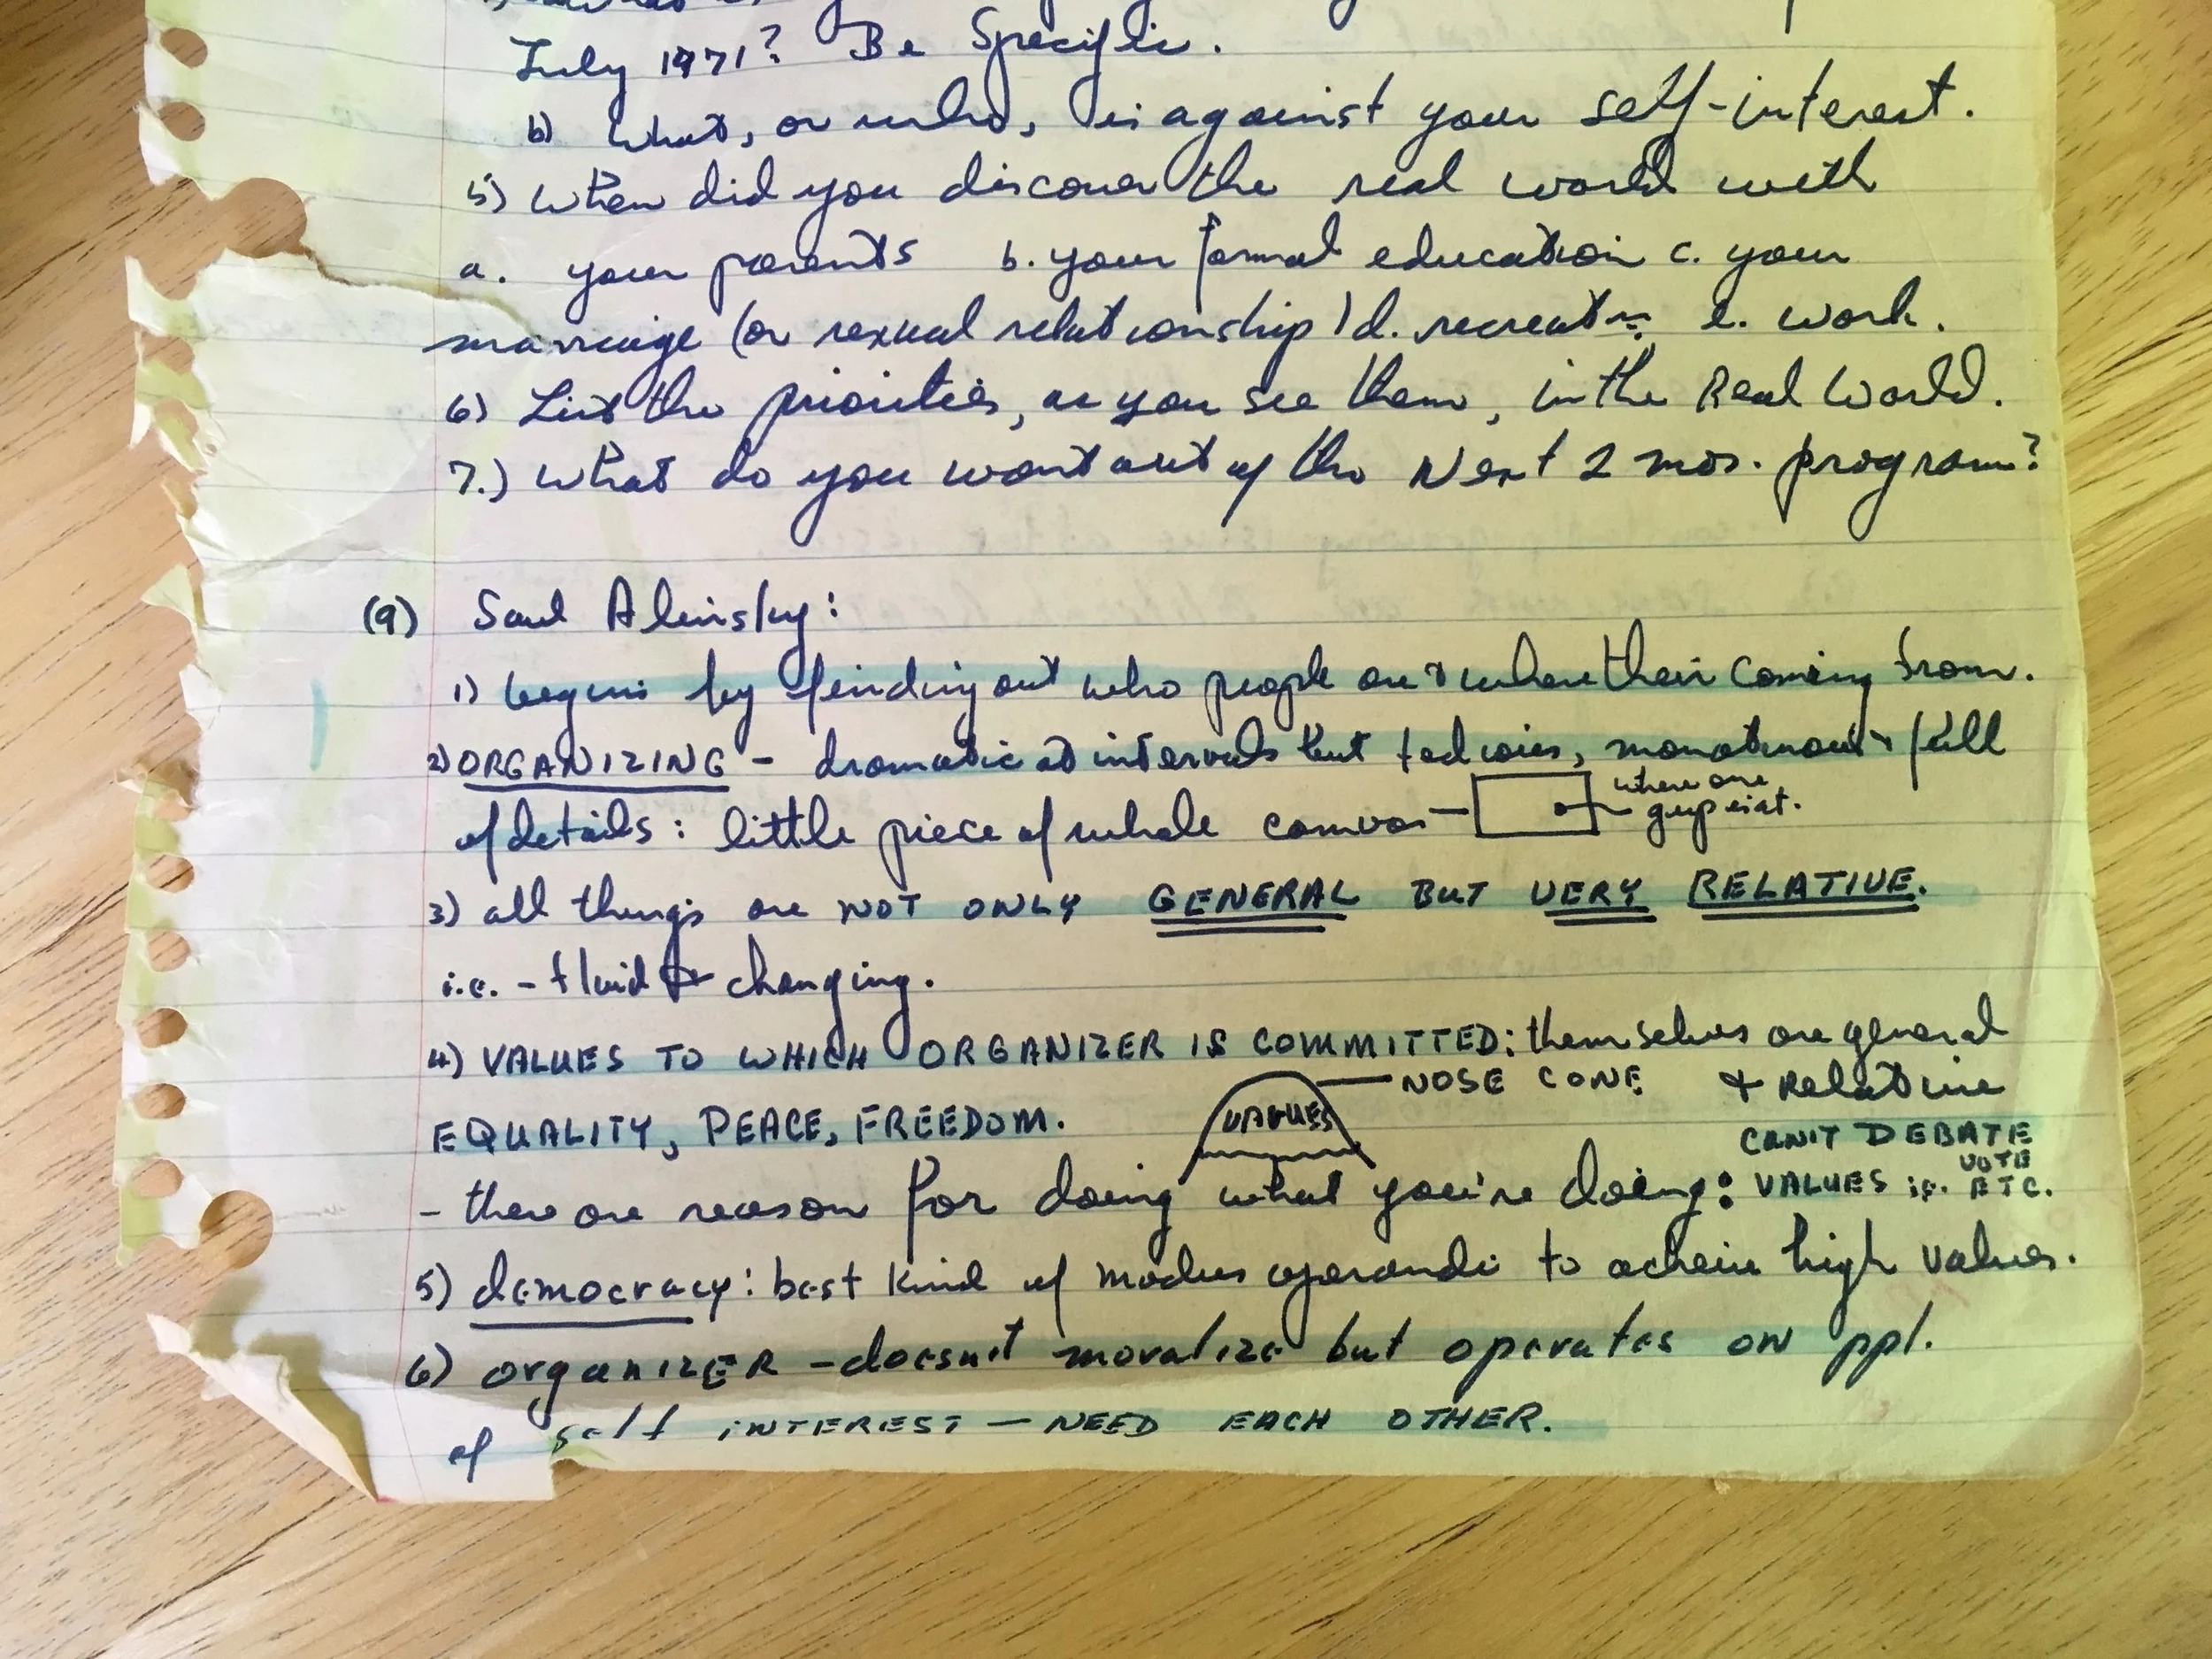 July 1971? Be Specific.
b) What, or who, is against your self-interest.
5) When did you discover the real world with
a. your parents b. your formal education c. your
marriage (or sexual relationship) d. recreatn e. work.
6) List the priorities, as you see them, in the Real World.
7.) What do you want out of the Next 2 mos. program?
(9) Saul Alinsky:
1) begins by finding out who people are & where their coming from.
2) ORGANIZING - dramatic at intervals but tedious, monotonous & full
of details: little piece of whole canvas
where one
3) all things are NOT ONLY GENERAL BUT VERY RELATIVE.
i.e. - fluid & changing.
4) VALUES TO WHICH ORGANIZER IS COMMITTED: themselves are general
NOSE CONE & Relative
EQUALITY, PEACE, FREEDOM. VALUES CAN'T DEBATE
- there are reason for doing what you're doing: VALUES i.e. VOTE ETC.
5) democracy: best kind of modus operandi to acheive high values.
6) organIZER - doesn't moralize but operates on ppl.
of self INTEREST - NEED EACH OTHER.